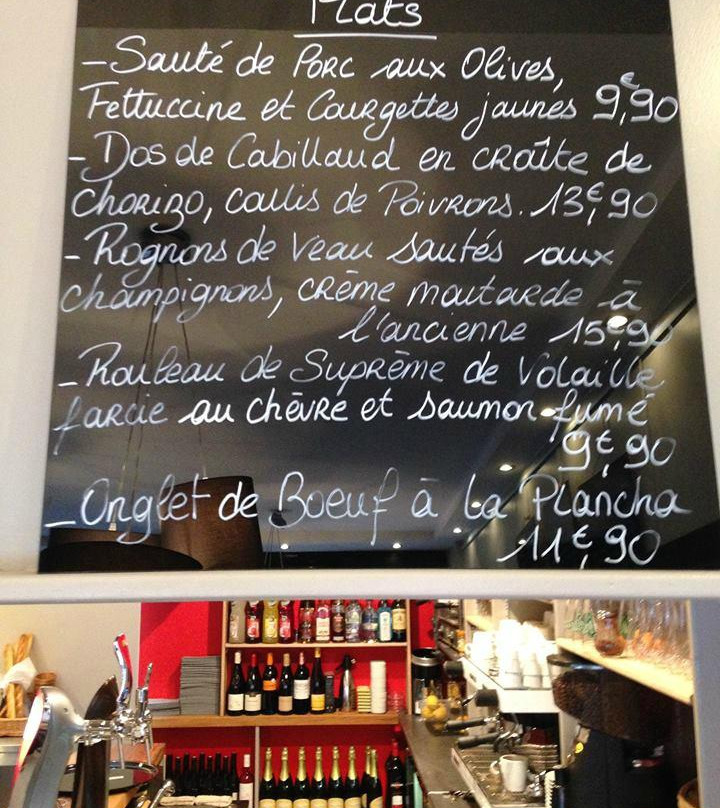 Plats
- Sauté de Porc aux Olives,
Fettuccine et Courgettes jaunes 9€,90
- Dos de Cabillaud en croûte de
Chorizo, coulis de Poivrons. 13€,90
- Rognons de Veau sautés aux
champignons, crème moutarde à
l'ancienne 15€,90
- Rouleau de Suprême de Volaille
farcie au chèvre et saumon fumé
9€,90
- Onglet de Boeuf à la Plancha
11€,90